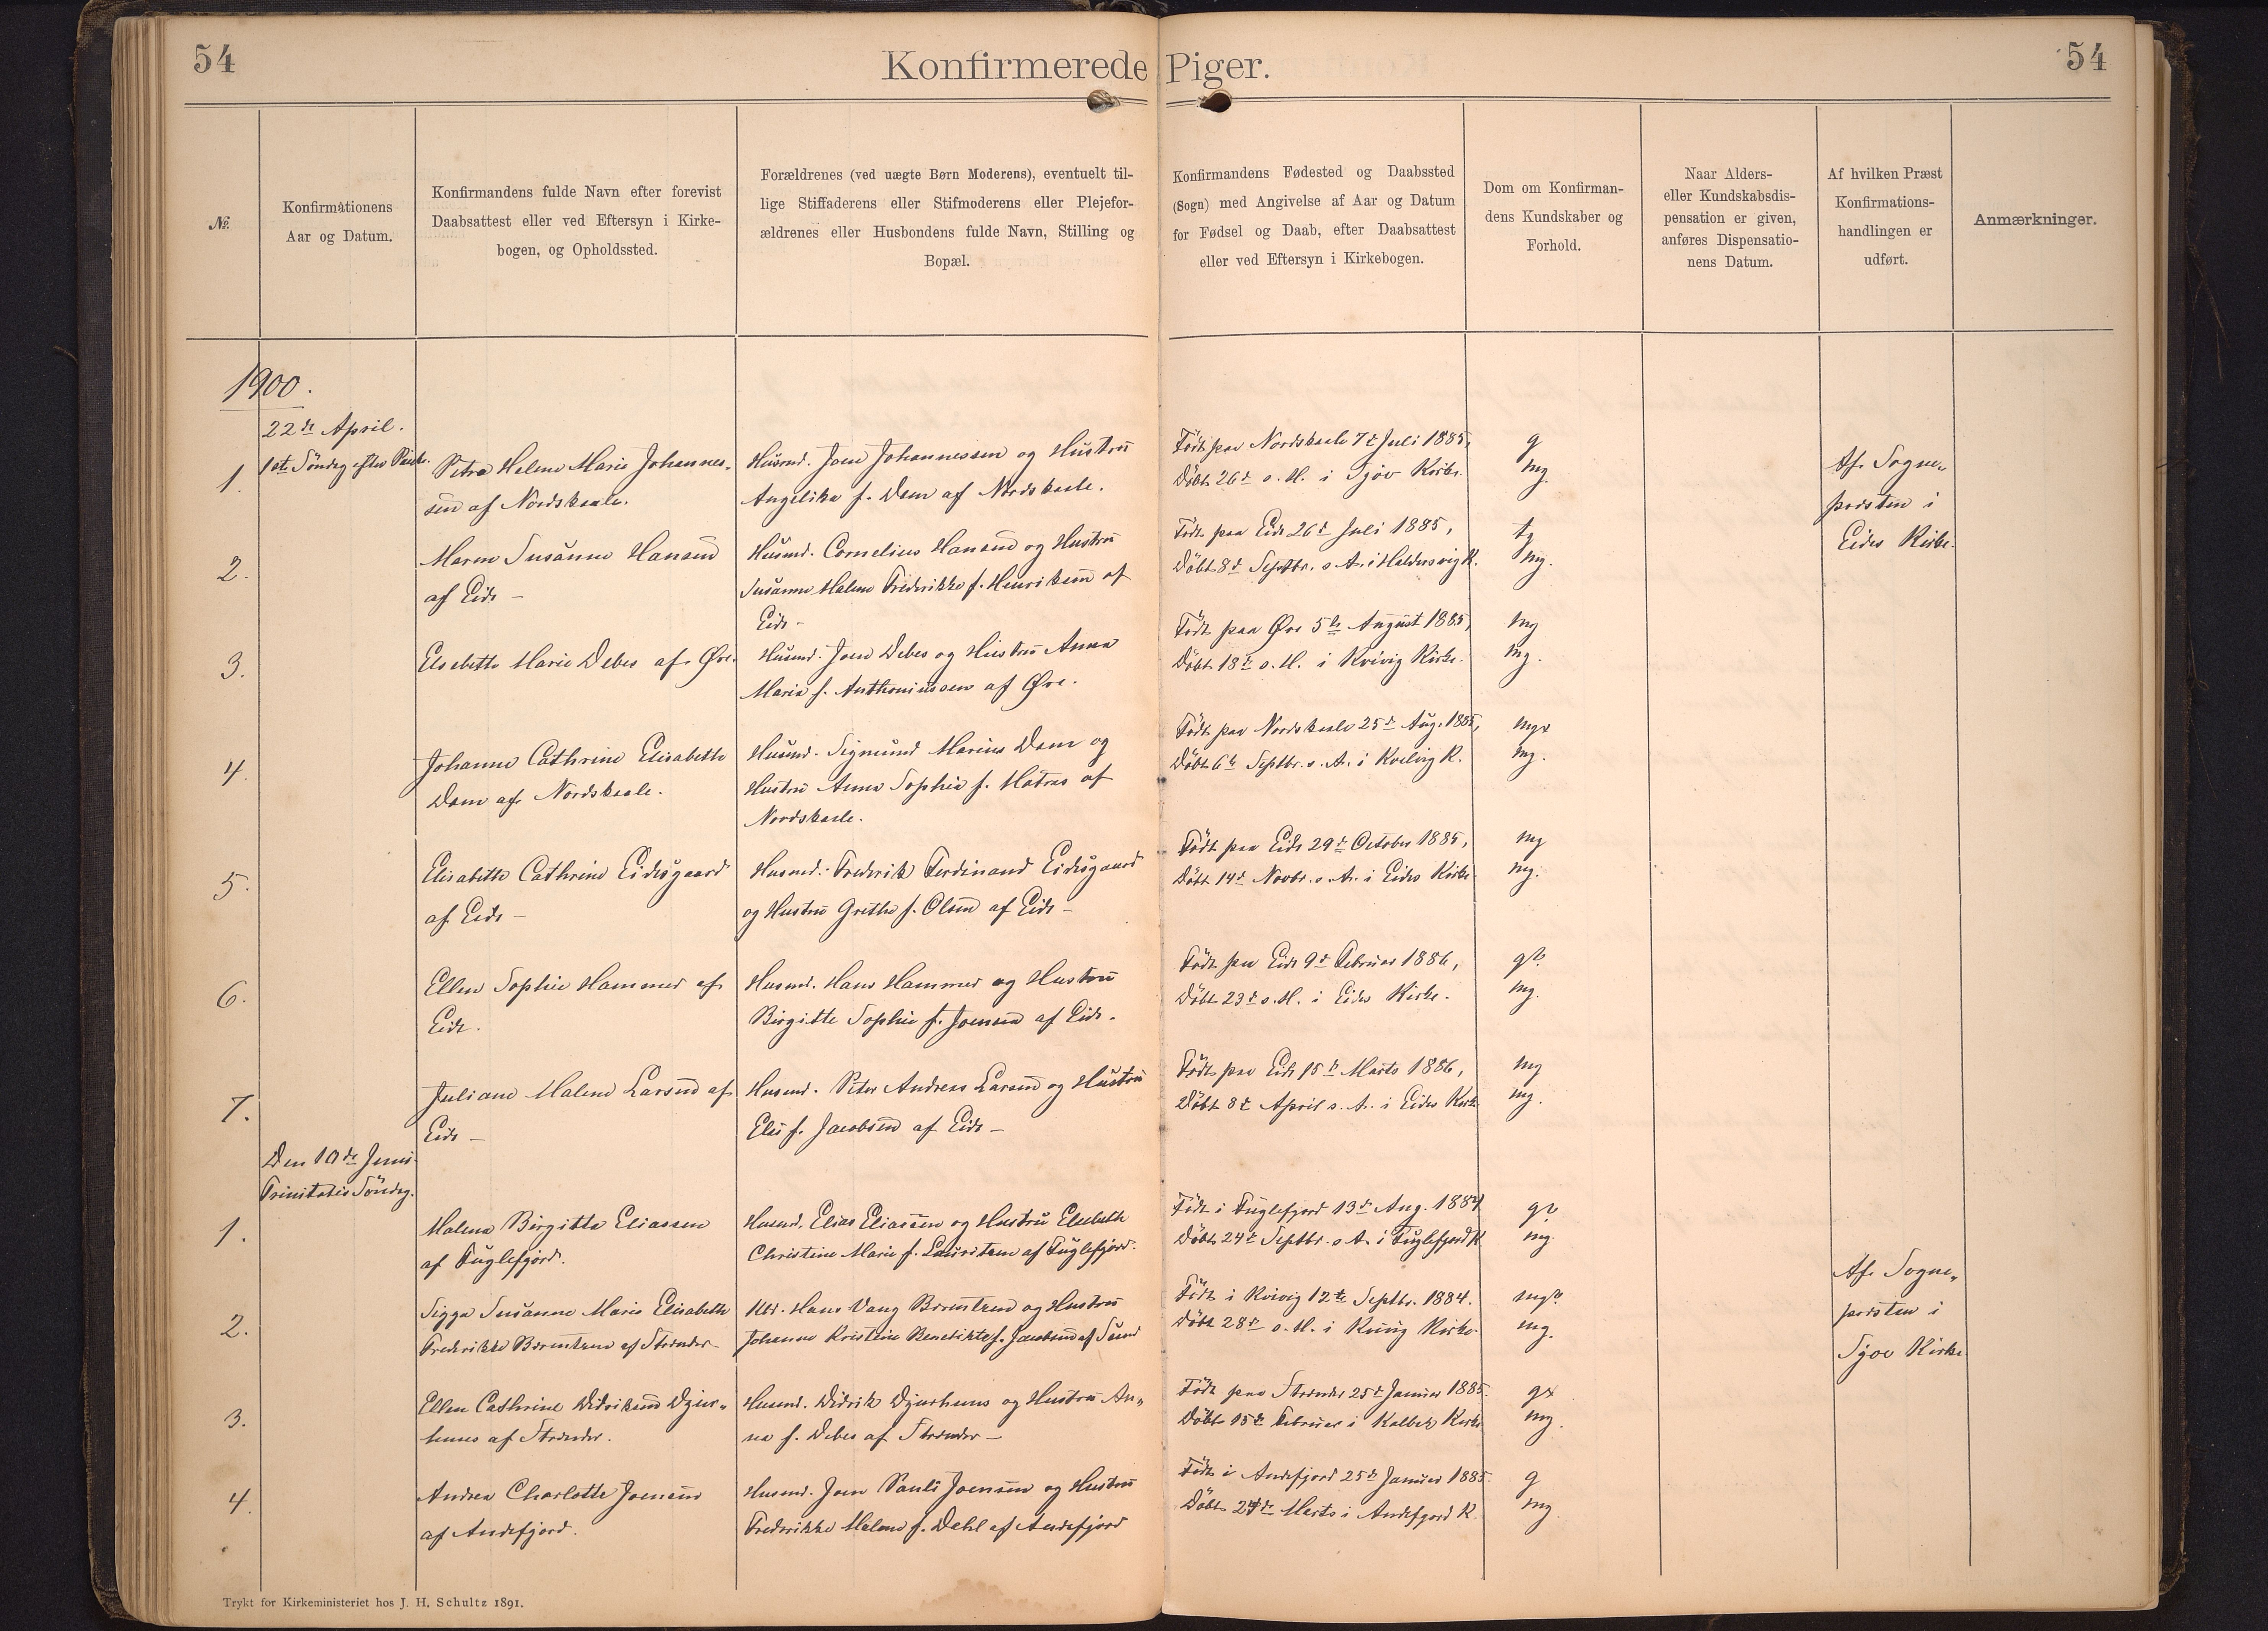 54
Konfirmerede Piger.
54
№
Konfirmationens
Aar og Datum.
Konfirmandens fulde Navn efter forevist
Daabsattest eller ved Eftersyn i Kirke-
bogen, og Opholdssted.
Forældrenes (ved uægte Børn Moderens), eventuelt til-
lige Stiffaderens eller Stifmoderens eller Plejefor-
ældrenes eller Husbondens fulde Navn, Stilling og
Bopæl.
Konfirmandens Fødested og Daabssted
(Sogn) med Angivelse af Aar og Datum
for Fødsel og Daab, efter Daabsattest
eller ved Eftersyn i Kirkebogen.
Dom om Konfirman-
dens Kundskaber og
Forhold.
Naar Alders-
eller Kundskabsdis-
pensation er given,
anføres Dispensatio-
nens Datum.
Af hvilken Præst
Konfirmations-
handlingen er
udført.
Anmærkninger.
1900.
22de April.
1ste Söndag efter Paaske.
1.
Petra Helene Marie Johannes-
sen af Nordskaale.
Husmd. Joen Johannessen og Hustru
Angelika f. Dam af Nordskaale.
Födt paa Nordskaale 7de Juli 1885,
Döbt 26de s. M. i Gjov Kirke.
g
mg.
Af Sogne-
præsten i
Eides Kirke.
2.
Maren Susanne Hansen
af Eide –
Husmd. Cornelius Hansen og Hustru
Susanne Malene Frederikke f. Henriksen af
Eide –
Födt paa Eide 26de Juli 1885,
Döbt 8de Septbr. s. A. i Haldersvig K.
tg
mg.
3.
Elsebeth Marie Debes af Øre.
Husmd. Joen Debes og Hustru Anna
Maria f. Anthoniussen af Øre.
Födt paa Øre 5te August 1885,
Döbt 18de s. M. i Kvivig Kirke.
mg
mg.
4.
Johanne Cathrine Elisabeth
Dam af Nordskaale.
Husmd. Sigmund Marius Dam og
Hustru Anna Sophie f. Matras af
Nordskaale.
Födt paa Nordskaale 25de Aug. 1885,
Döbt 6te Septbr. s. A. i Kvivig K.
mgx
mg.
5.
Elisabeth Cathrine Eidesgaard
af Eide –
Husmd. Frederik Ferdinand Eidesgaard
og Hustru Grethe f. Olsen af Eide –
Födt paa Eide 29de October 1885,
Döbt 14de Novbr. s. A. i Eides Kirke
mg
mg.
6.
Ellen Sophie Hammer af
Eide.
Husmd. Hans Hammer og Hustru
Birgitte Sophie f. Joensen af Eide.
Födt paa Eide 9de Februar 1886,
Döbt 23de s. M. i Eides Kirke.
g?
mg.
7.
Juliane Malene Larsen af
Eide –
Husmd. Peter Andreas Larsen og Hustru
Else f. Jacobsen af Eide –
Födt paa Eide 15de Marts 1886,
Döbt 8de April s. A. i Eides Kirke
mg
mg.
Den 10de Juni.
Trinitatis Söndag.
1.
Malene Birgitte Eliassen
af Fuglefjord.
Husmd. Elias Eliassen og Hustru Elsebeth
Christine Marie f. Lauritsen af Fuglefjord.
Födt i Fuglefjord 13de Aug. 1884
Döbt 24de Septbr. s. A. i Fuglefjord K
g?
mg.
Af Sogne-
præsten i
Gjov Kirke
2.
Sigga Susanne Marie Elisabeth
Frederikke Berentsen af Strænder –
Hans Vang Berentsen og Hustru
Johanne Kristine Benedikte f. Jacobsen af Sund
Födt i Kvivig 12te Septbr. 1884.
Döbt 28de s. M. i Kvivig Kirke.
mg?
mg.
3.
Ellen Cathrine Didriksen Djur-
huus af Strænder.
Husmd. Didrik Djurhuus og Hustru An-
na f. Debes af Strænder –
Födt paa Strænder 25de Januar 1885.
Döbt 15de Februar i Kolbek Kirke
gx
mg.
4.
Andrea Charlotte Joensen
af Andefjord.
Husmd. Joen Pauli Joensen og Hustru
Frederikke Malene f. Dahl af Andefjord
Födt i Andefjord 25de Januar 1885.
Döbt 24de Marts i Andefjord K.
g
mg.
Trykt for Kirkeministeriet hos J. H. Schultz 1891.